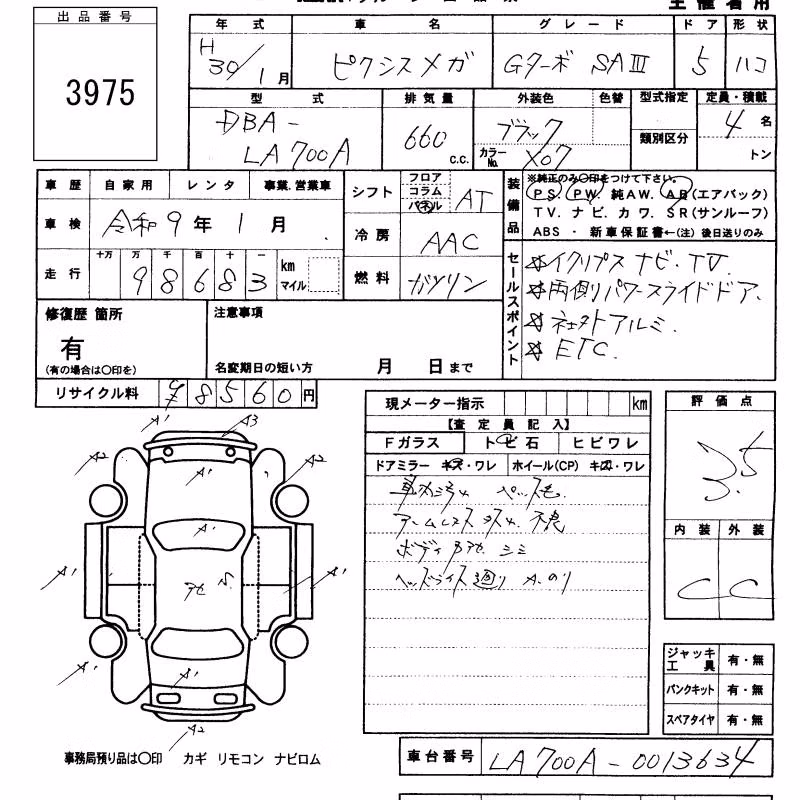 主催者用
出品番号
3975
年式 車名 グレード ドア 形状
H 30/1月 ピクシスメガ Gターボ SAⅢ 5 ハコ
型式 排気量 外装色 色替 型式指定 定員・積載
DBA-
LA700A 660 c.c. ブラック カラーNo. X07 類別区分 4名
トン
車歴 自家用 レンタ 事業.営業車 シフト フロア コラム パネル AT 装備品 ※純正のみ〇印をつけて下さい。
PS. PW. 純AW. AB(エアバック)
車検 令和9年1月 TV. ナビ. カワ. SR(サンルーフ)
冷房 AAC ABS ・ 新車保証書←(注) 後日送りのみ
走行 十万 万 千 百 十 一 98683 km マイル 燃料 ガソリン
セールスポイント ☆イクリプス ナビ・TV.
☆両側パワースライドドア.
☆社外アルミ.
☆ETC.
修復歴 箇所 注意事項
有
(有の場合は〇印を) 名変期日の短い方 月 日まで
リサイクル料 ¥8560円
現メーター指示 km 評価点
【査定員記入】 3.5
Fガラス トビ石 ヒビワレ
ドアミラー キズ・ワレ ホイール(CP) キズ・ワレ
車内ゴミ
アームレスト 不良
ボディ シミ
ヘッドライト廻り A.のり
内装 外装
C C
A1 A3
A2 A1 A2
A1
A1 A1
A1 A1
A2
ジャッキ工具 有・無
パンクキット 有・無
スペアタイヤ 有・無
事務局預り品は〇印 カギ リモコン ナビロム
車台番号 LA700A-0013634